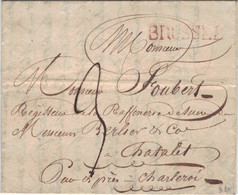 BRUSSEL
Monsieur
Monsieur Joubert
Régisseur de la Raffinerie de Sucre de
Messieurs Berlier & Co
a Chatelet
près Charleroi